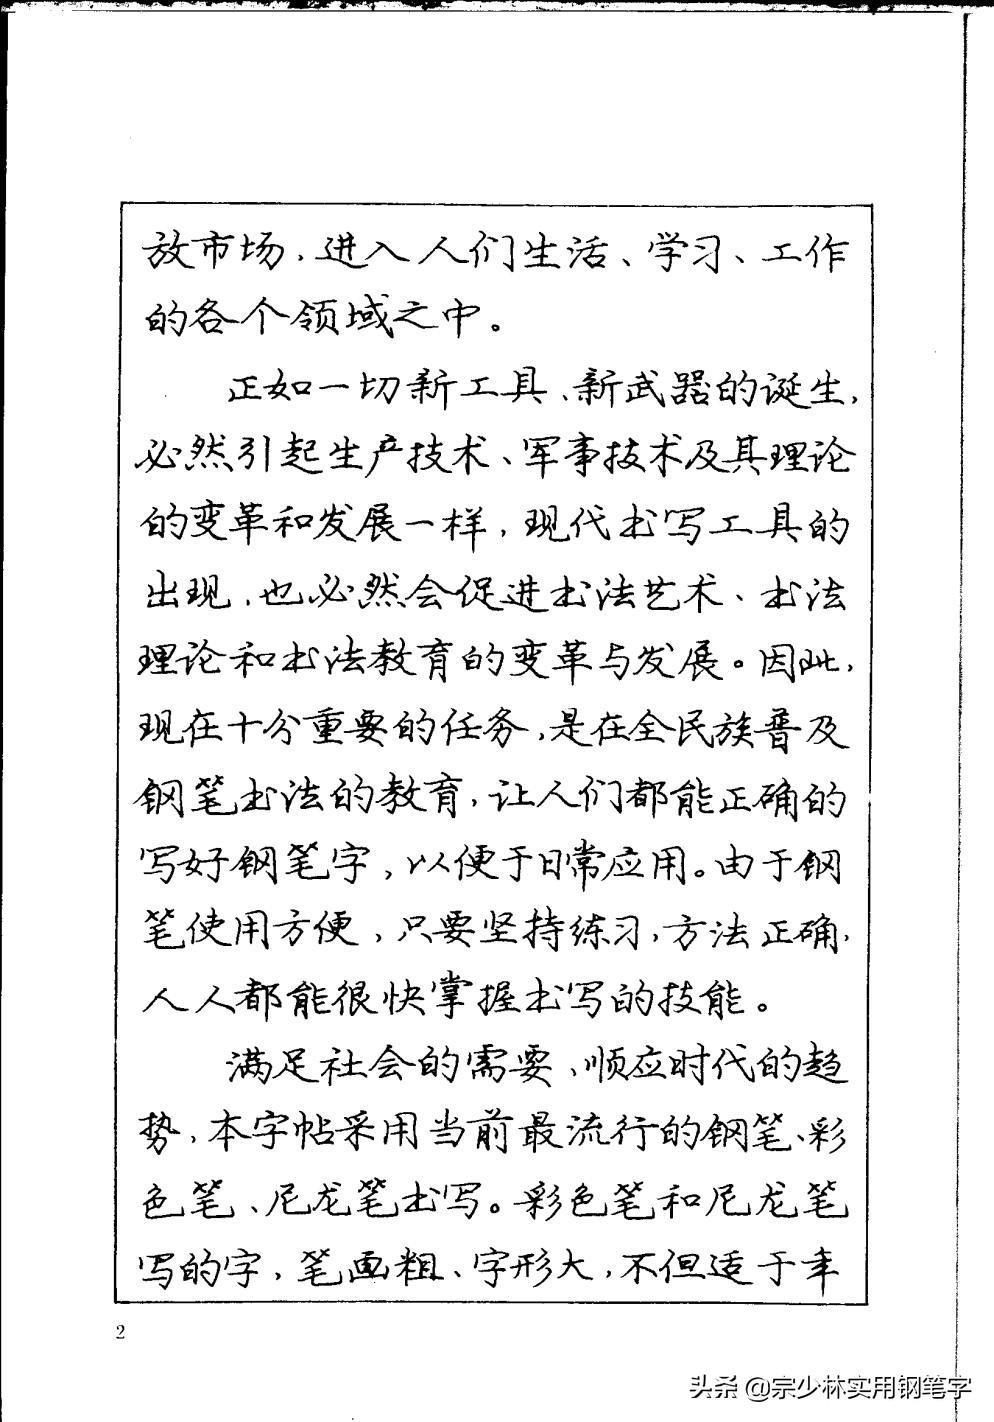 放市场，进入人们生活、学习、工作
的各个领域之中。
正如一切新工具、新武器的诞生，
必然引起生产技术、军事技术及其理论
的变革和发展一样，现代书写工具的
出现，也必然会促进书法艺术、书法
理论和书法教育的变革与发展。因此，
现在十分重要的任务，是在全民族普及
钢笔书法的教育，让人们都能正确的
写好钢笔字，以便于日常应用。由于钢
笔使用方便，只要坚持练习，方法正确，
人人都能很快掌握书写的技能。
满足社会的需要、顺应时代的趋
势，本字帖采用当前最流行的钢笔、彩
色笔、尼龙笔书写。彩色笔和尼龙笔
写的字，笔画粗、字形大，不但适于年
2
头条 @宗少林实用钢笔字